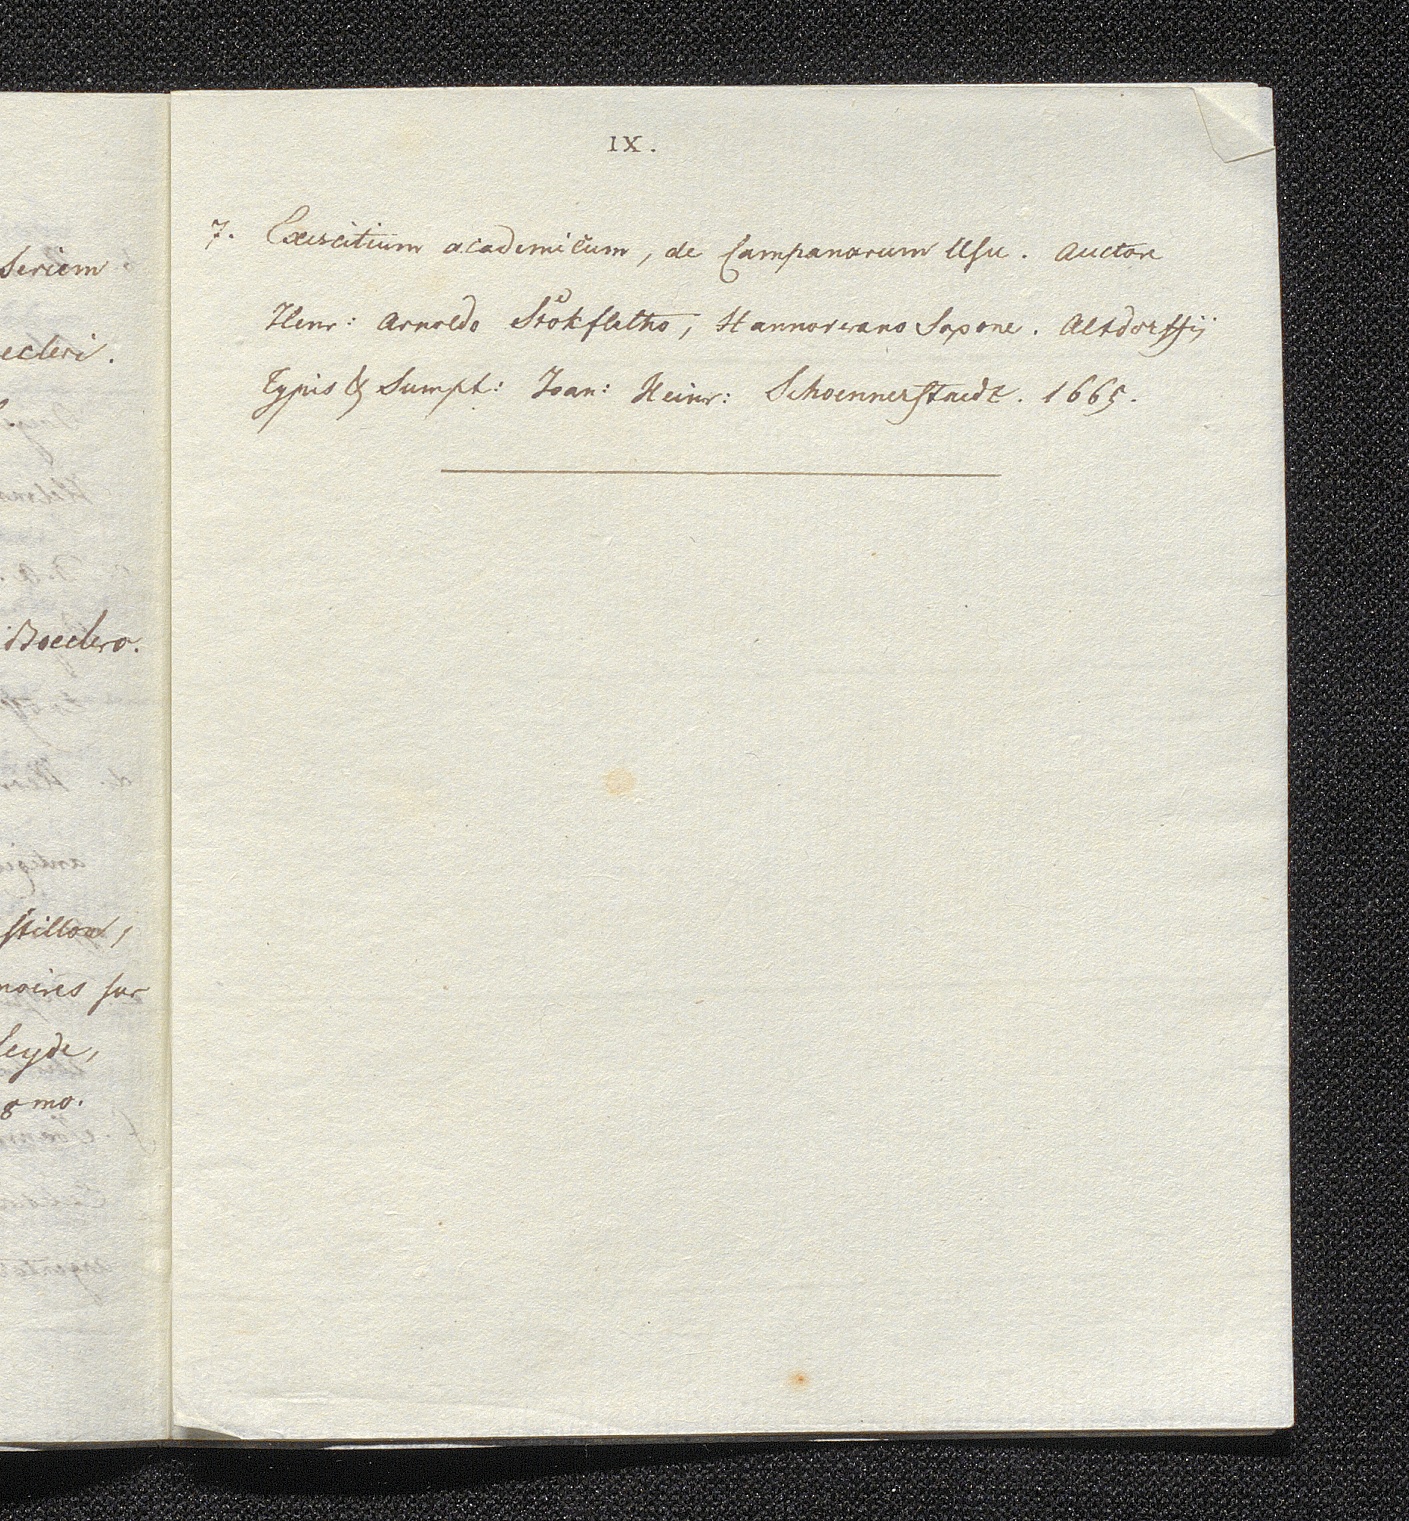 Seriem
ecleri.
Boeclero.
stillon,
moires sur
Leyde,
8 mo.
IX.
7. Exercitium academicum, de Campanarum Usu. Auctore
Henr: Arnoldo Stokfletho, Hannoverano Saxone. Altdorffij
Typis & Sumpt: Joan: Heinr: Schoennerstaedt. 1665.